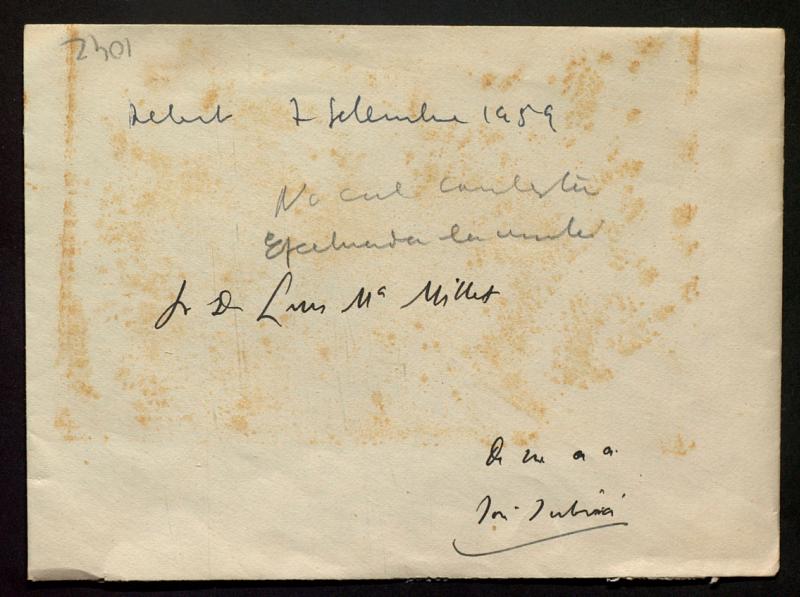 2301
Rebut 7 Setembre 1959
No cal contestar
Efectuada la
Sr Dn Luis Mª Millet
De su a a.
José Subirá